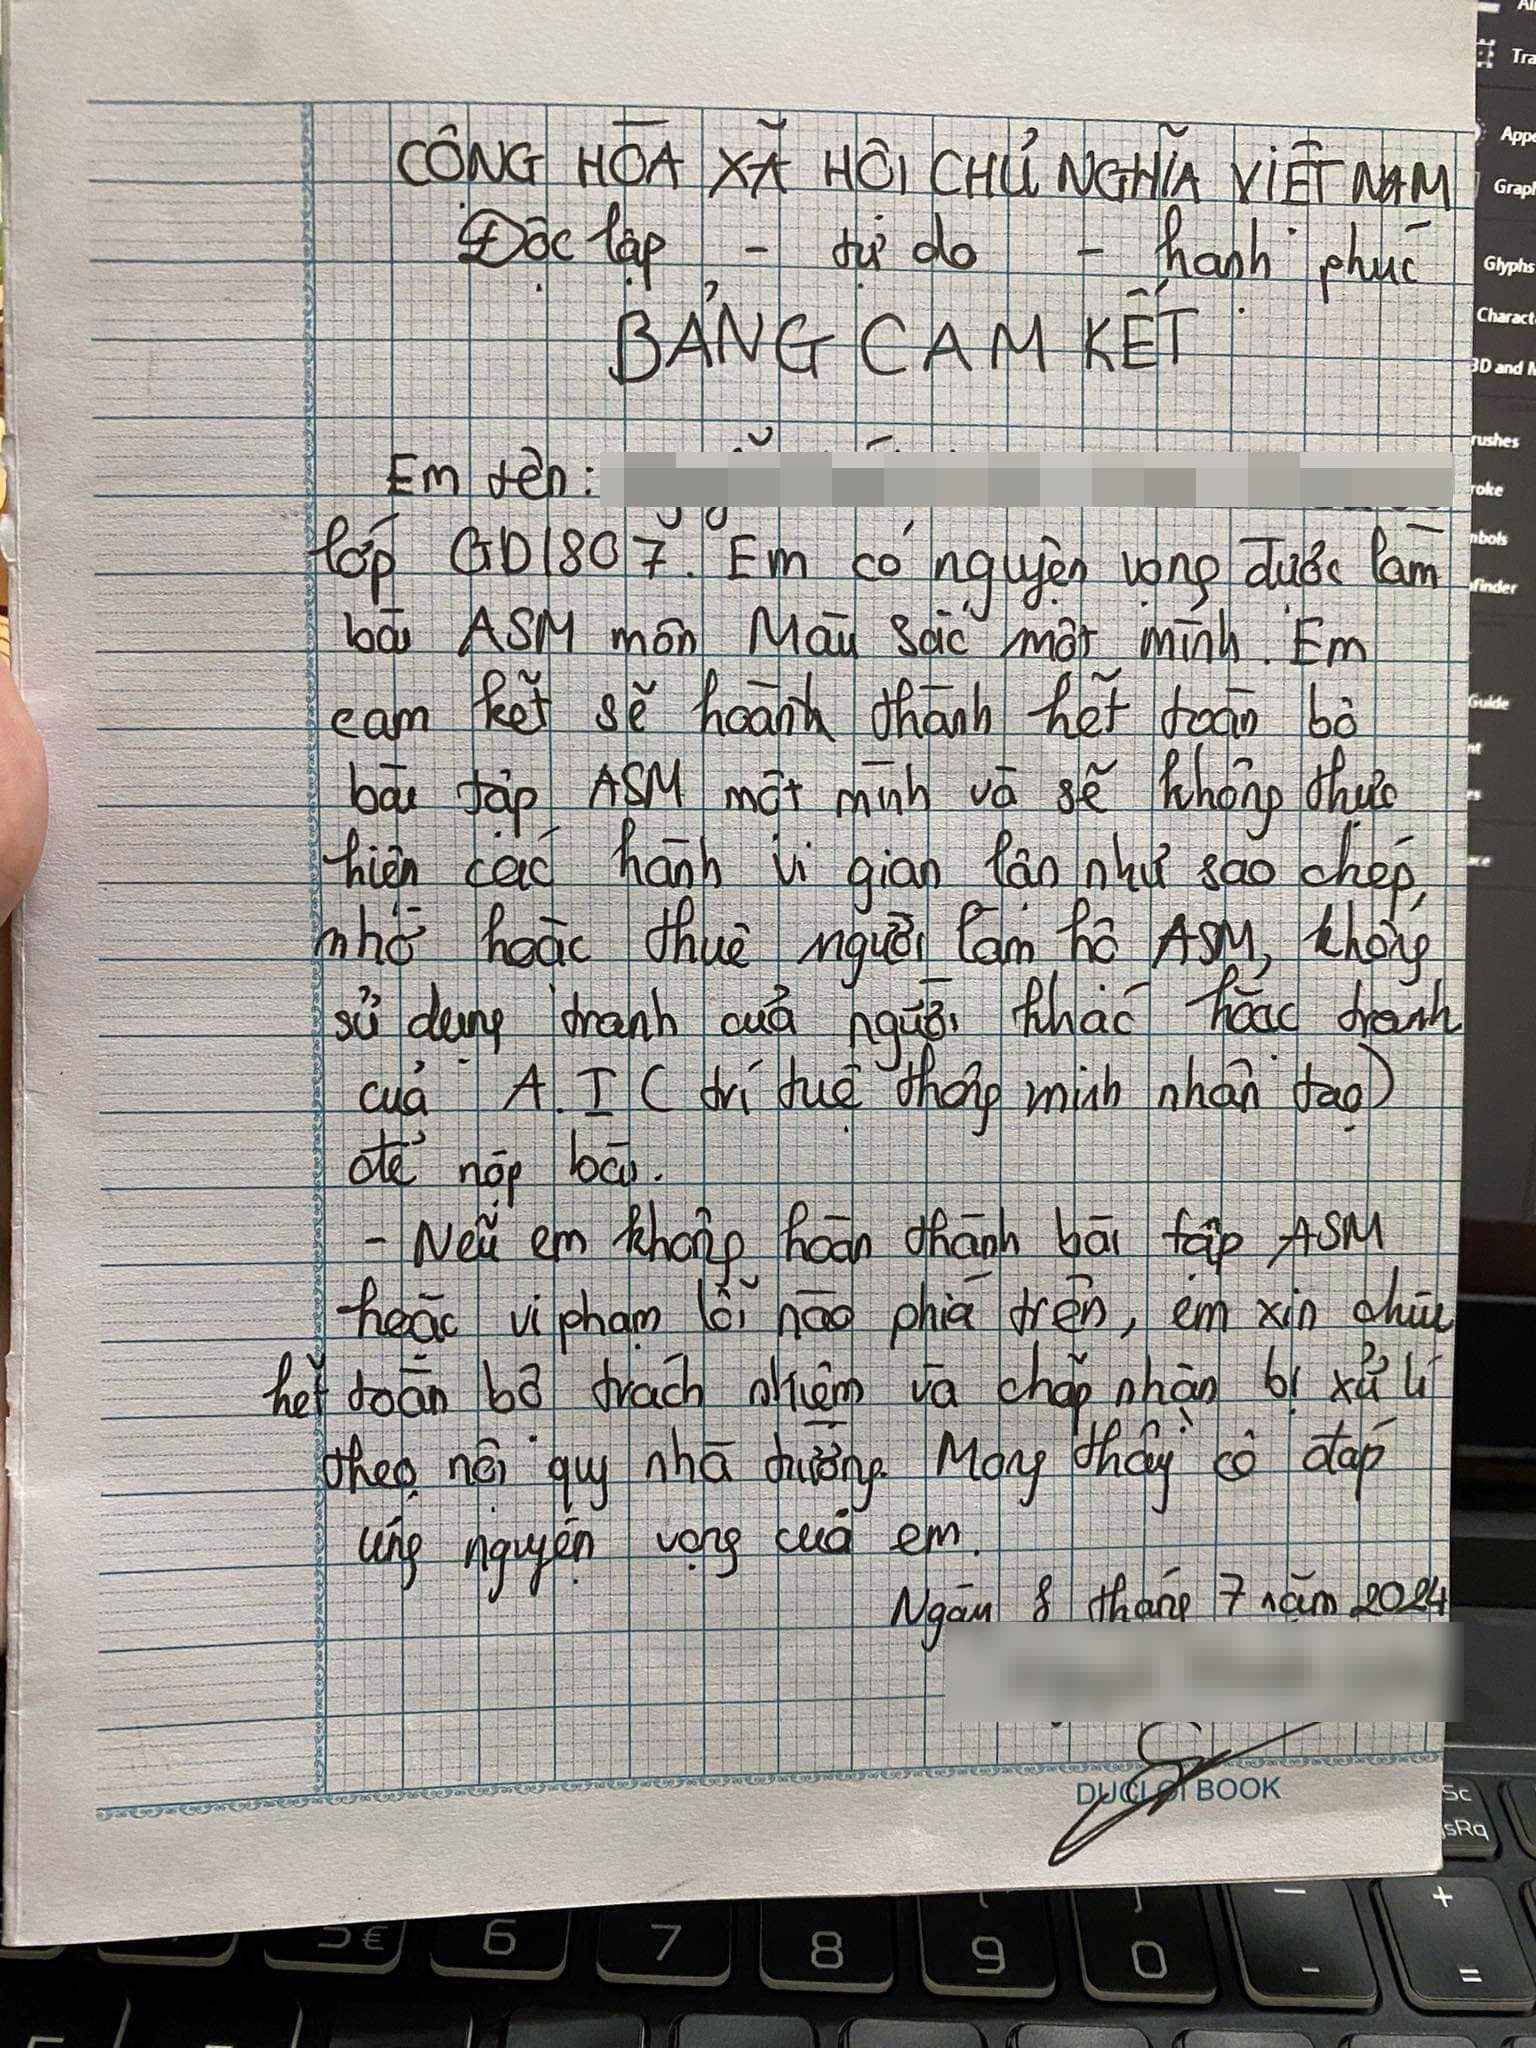 CỘNG HÒA XÃ HỘI CHỦ NGHĨA VIỆT NAM
Độc lập - tự do - hạnh phúc
BẢNG CAM KẾT
Em tên:
lớp GD1807. Em có nguyện vọng được làm
bài ASM môn Màu sắc một mình. Em
cam kết sẽ hoành thành hết toàn bộ
bài tập ASM một mình và sẽ không thực
hiện các hành vi gian lận như sao chép,
nhờ hoặc thuê người làm hộ ASM, không
sử dụng tranh của người khác hoặc tranh
của A.I (trí tuệ thông minh nhân tạo)
để nộp bài.
- Nếu em không hoàn thành bài tập ASM
hoặc vi phạm lỗi nào phía trên, em xin chịu
hết toàn bộ trách nhiệm và chấp nhận bị xử lí
theo nội quy nhà trường. Mong thầy cô đáp
ứng nguyện vọng của em.
Ngày 8 tháng 7 năm 2024
DUCLOI BOOK
Tra
Appe
Grap
Glyphs
Charact
3D and M
rushes
roke
mbols
finder
Guide
Sc
sRq
5 €
6
7
8
9
)
0
_
-
+
=